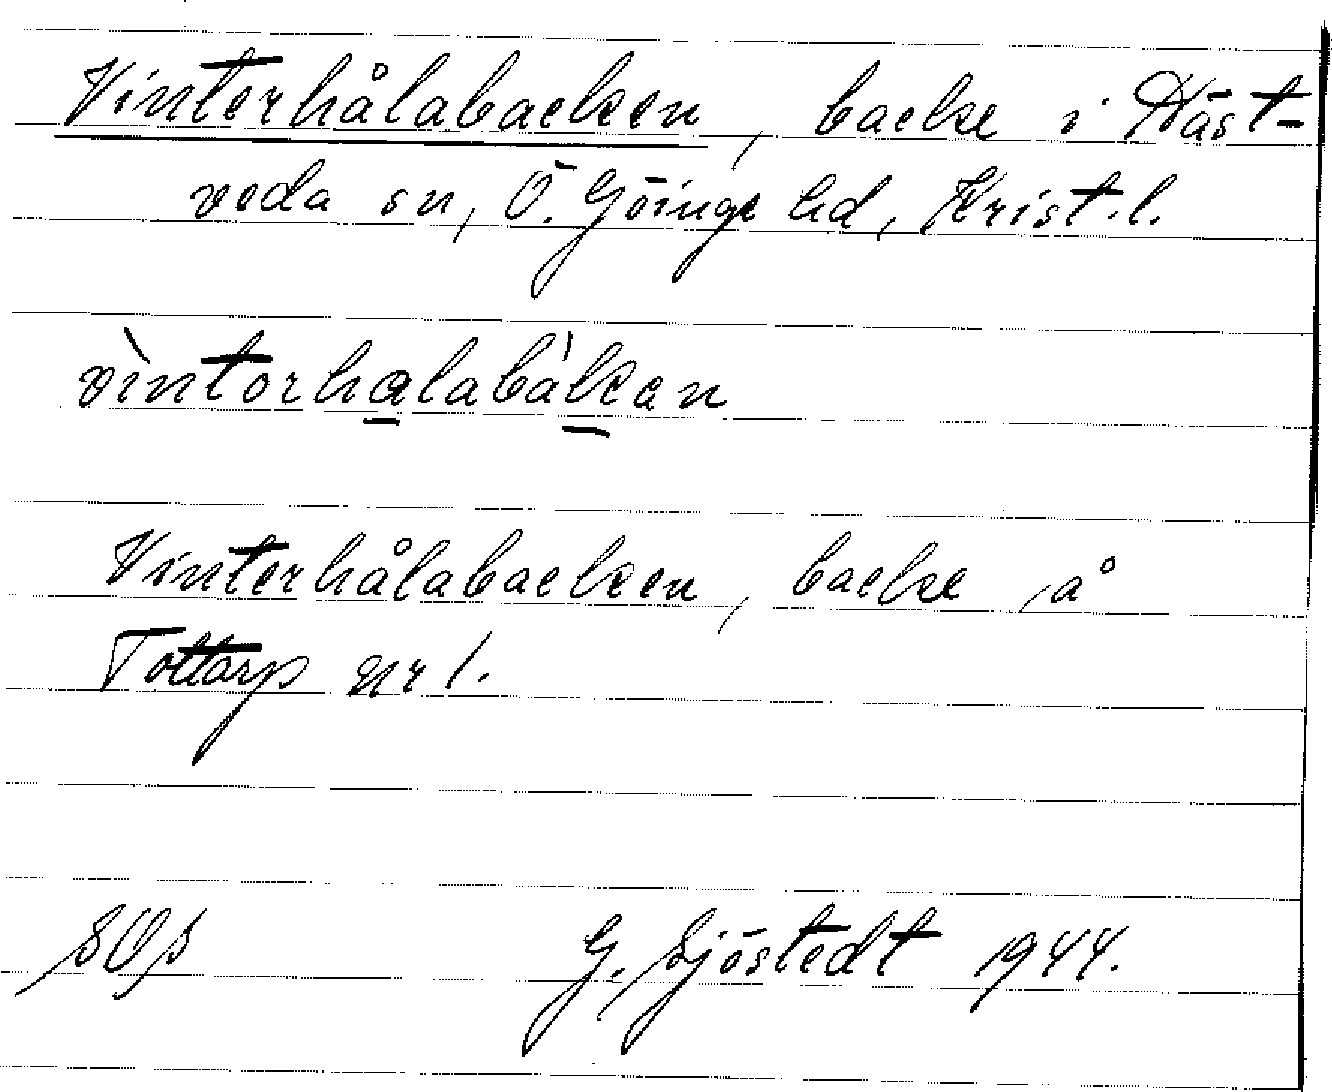 Vinterhålabacken, backe i Häst-
veda sn, Ö. Göinge hd, Krist. l.
vìntorhalabákan
Vinterhålabacken, backe på
Tottarp nr 1.
G. Sjöstedt 1944.